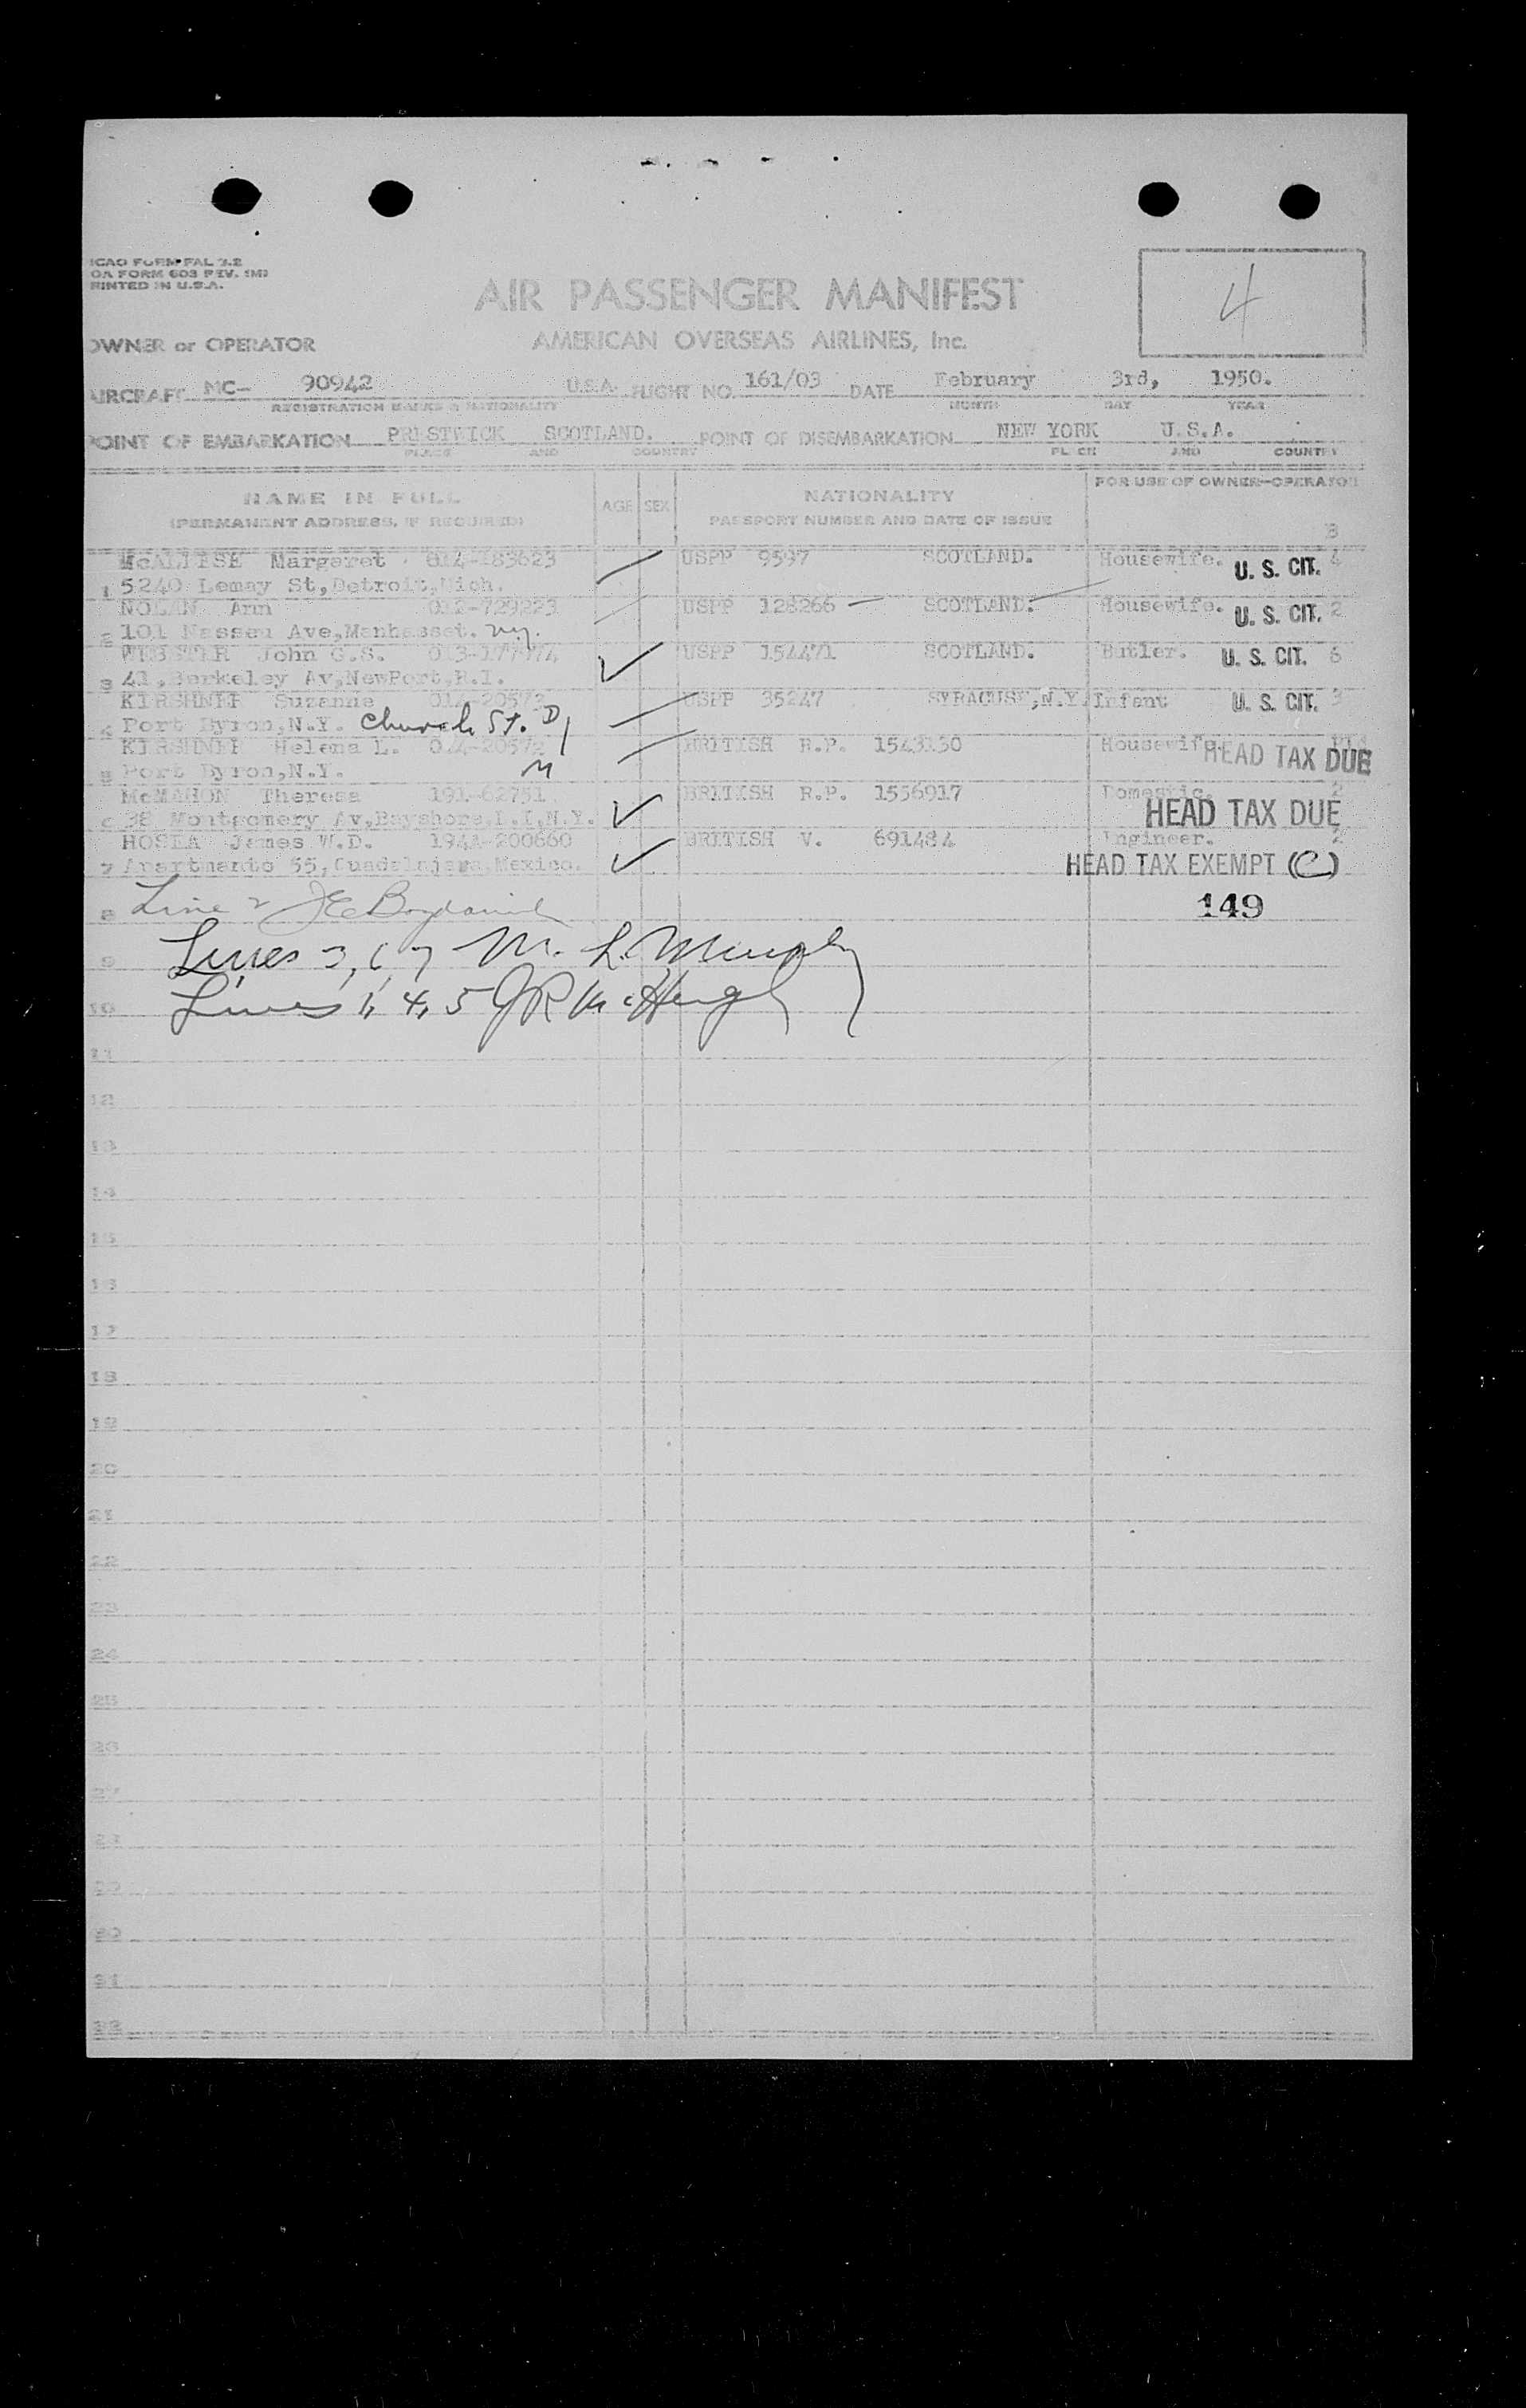 ICAO FORM FAL 2.2
OA FORM 603 REV. (M)
RINTED IN U.S.A.
4
AIR PASSENGER MANIFEST
OWNER or OPERATOR AMERICAN OVERSEAS AIRLINES, Inc.
AIRCRAFT MC- 90942 U.S.A. FLIGHT NO. 161/03 DATE February 3rd, 1950.
REGISTRATION MARKS & NATIONALITY MONTH DAY YEAR
POINT OF EMBARKATION PRESTWICK SCOTLAND. POINT OF DISEMBARKATION NEW YORK U.S.A.
PLACE AND COUNTRY PLACE AND COUNTRY
NAME IN FULL AGE SEX NATIONALITY FOR USE OF OWNER-OPERATOR
(PERMANENT ADDRESS, IF REQUIRED) PASSPORT NUMBER AND DATE OF ISSUE
B
McALEESE Margaret 014-183623 USPP 9597 SCOTLAND. Housewife. U. S. CIT. 4
1 5240 Lemay St,Detroit,Mich.
NOLAN Ann 012-729223 USPP 128266 SCOTLAND. Housewife. U. S. CIT. 2
2 101 Nassau Ave,Manhasset. N.Y.
WEBSTER John G.S. 013-177974 USPP 154471 SCOTLAND. Butler. U. S. CIT. 6
3 41,Berkeley Av,NewPort,R.I.
KIRSHNER Suzanne 014-20572 USPP 35247 SYRACUSE,N.Y. Infant U. S. CIT. 3
4 Port Byron,N.Y. Church St. D
KIRSHNER Helena L. 014-20572 BRITISH R.P. 1543130 Housewife. HEAD TAX DUE
5 Port Byron,N.Y. M
McMAHON Theresa 191-62751 BRITISH R.P. 1556917 Domestic. 2
6 38 Montgomery Av,Bayshore,L.I,N.Y. HEAD TAX DUE
HOSEA James W.D. 194A-200660 BRITISH V. 691484 Engineer. 2
7 Apartmento 55,Guadalajara,Mexico. HEAD TAX EXEMPT (C)
8 Line 2 149
9 Lines 3, 6, 7 M. L. Murphy
10 Lines 1, 4, 5 JR McHugh
11
12
13
14
15
16
17
18
19
20
21
22
23
24
25
26
27
28
29
30
31
32